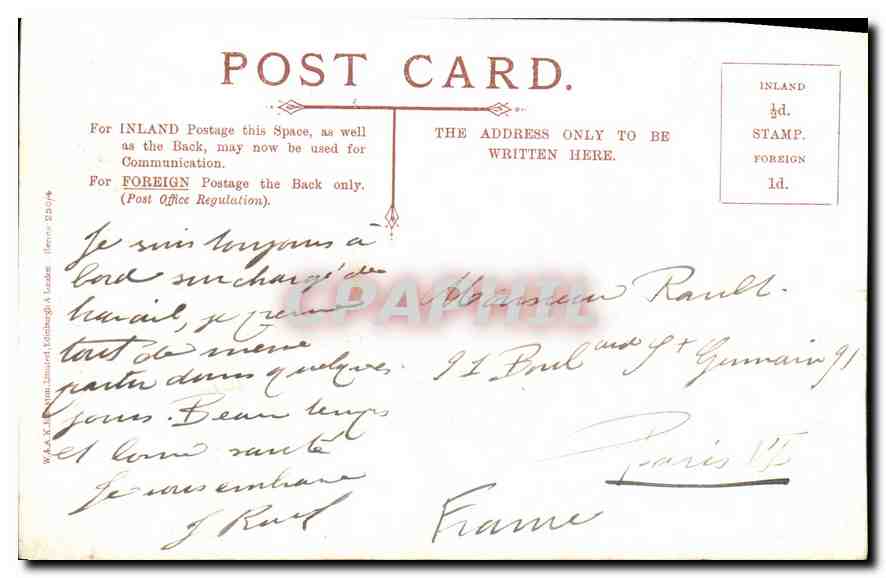 POST CARD.
For INLAND Postage this Space, as well
as the Back, may now be used for
Communication.
For FOREIGN Postage the Back only.
(Post Office Regulation).
THE ADDRESS ONLY TO BE
WRITTEN HERE.
INLAND
½d.
STAMP.
FOREIGN
1d.
Limited, Edinburgh & London Series 250/4
Je suis toujours à
bord surchargé de
travail, je pense
tout de meme
partir dans quelques
jours. Beau temps
et bonne santé
Je vous embrasse
Monsieur Rault.
91 Boulard St Germain 91
Paris VI
France
CPAPHIL